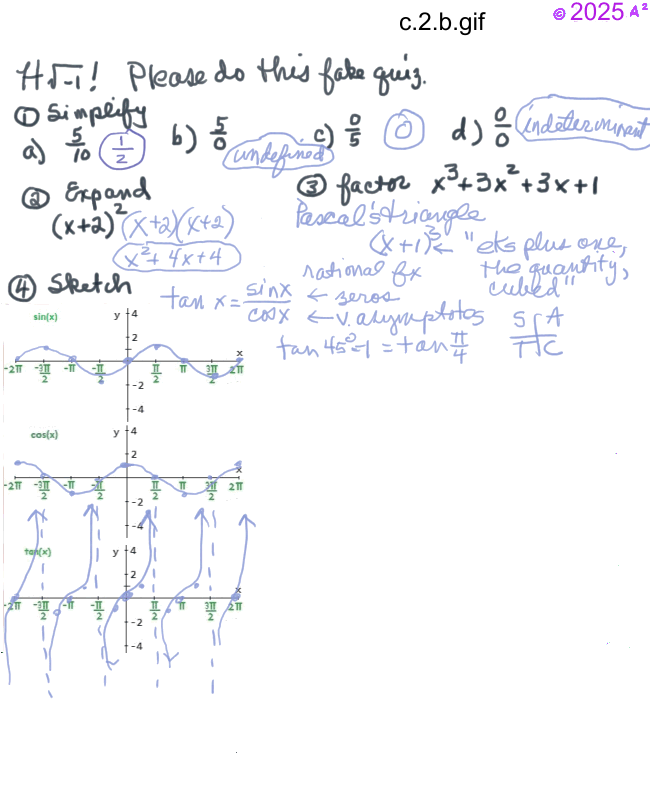 c.2.b.gif
© 2025 A²
H√-1! Please do this fake quiz.
① Simplify
a) 5/10 1/2 b) 5/0 undefined c) 0/5 0 d) 0/0 indeterminant
② Expand
(x+2)² (x+2)(x+2)
x²+4x+4
③ factor x³+3x²+3x+1
Pascal's triangle
(x+1)³ ← "eks plus one,
the quantity,
cubed"
④ Sketch
rational fx
tan x = sinx/cosx ← zeros
← v. asymptotes
tan 45°=1 = tan π/4
S A
T C
sin(x) y 4
2
x
-2π -3π/2 -π -π/2 π/2 π 3π/2 2π
-2
-4
cos(x) y 4
2
x
-2π -3π/2 -π -π/2 π/2 π 3π/2 2π
-2
-4
tan(x) y 4
2
x
-2π -3π/2 -π -π/2 π/2 π 3π/2 2π
-2
-4